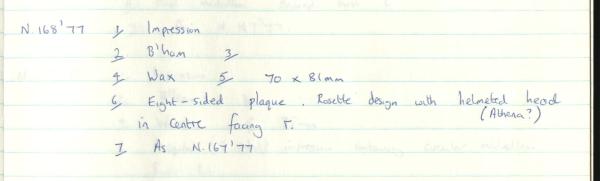 N.168'77 1/ Impression
2/ B'ham 3/
4/ Wax 5/ 70 x 81mm
6/ Eight-sided plaque. Rosette design with helmeted head
(Athena?)
in centre facing r.
7/ As N.167'77